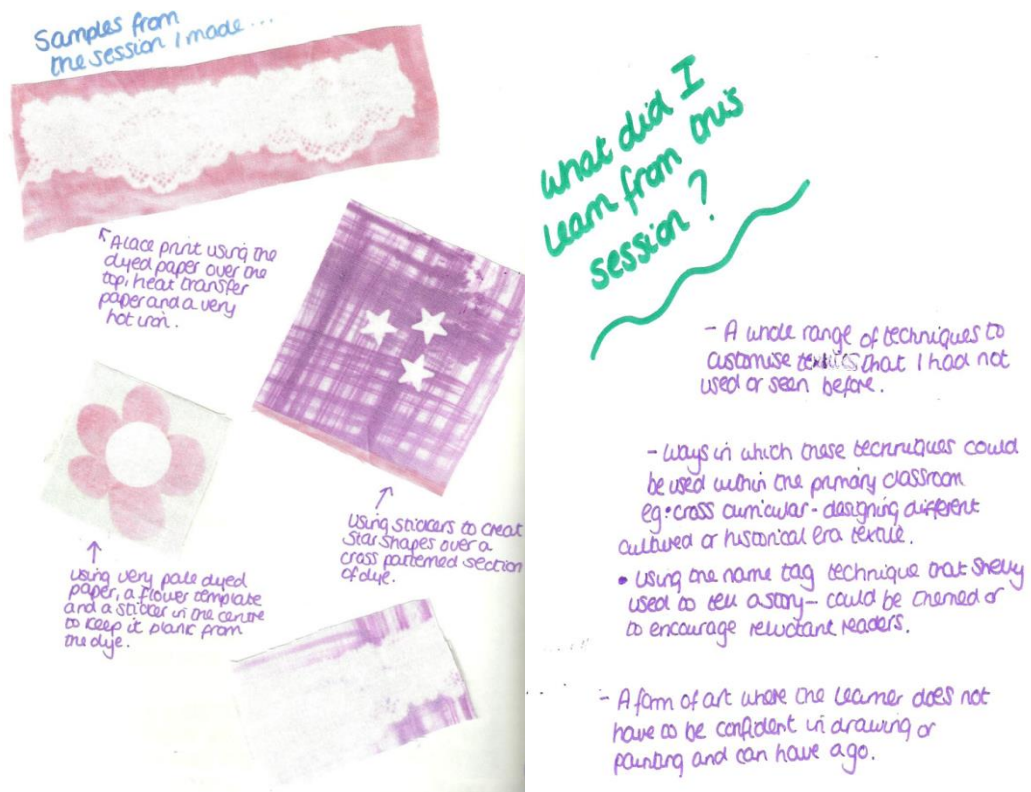 Samples from
the session I made...
A lace print using the
dyed paper over the
top, heat transfer
paper and a very
hot iron.
Using stickers to creat
star shapes over a
cross patterned section
of dye.
Using very pale dyed
paper, a flower template
and a sticker in the centre
to keep it blank from
the dye.
What did I
learn from this
session?
- A whole range of techniques to
customise textiles that I had not
used or seen before.
- Ways in which these techniques could
be used within the primary classroom
eg: cross curricular - designing different
cultured or historical era textile.
• Using the name tag technique that Shelly
used to tell a story - could be themed or
to encourage reluctant readers.
- A form of art where the learner does not
have to be confident in drawing or
painting and can have a go.